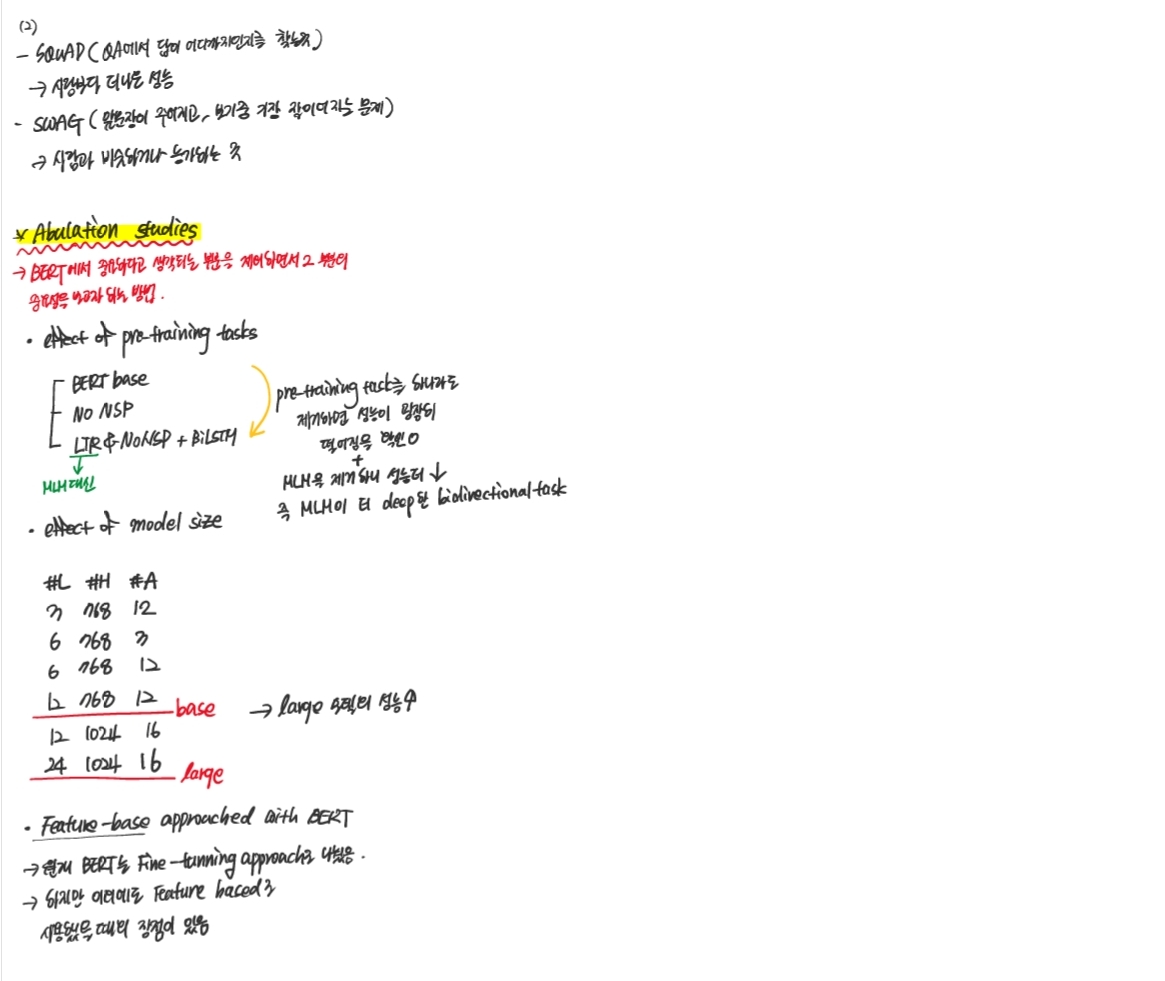 (2)
- SQuAD (QA에서 답이 어디까지인지를 찾는것)
→ 사람보다 더나은 성능
- SWAG (앞문장이 주어지고, 보기중 가장 잘이어지는 문제)
→ 사람과 비슷하거나 능가되는 것
* Abulation studies
→ BERT에서 중요하다고 생각되는 부분을 제어하면서 그 부분의
중요성을 보고자 하는 방법.
• effect of pre-training tasks
BERT base
NO NSP
LTR & NoNSP + BiLSTM
MLM대신
pre-training task를 하나라도
제거하면 성능이 굉장히
떨어짐을 확인 O
+
MLM을 제거하니 성능더 ↓
즉 MLM이 더 deep한 bidirectional task
• effect of model size
#L #H #A
3 768 12
6 768 3
6 768 12
12 768 12 base → large 할 성능↑
12 1024 16
24 1024 16 large
• Feature-base approached with BERT
→ 현재 BERT는 Fine-tunning approach로 나왔음.
→ 하지만 이외에도 Feature based로
사용했을 때의 장점이 있음